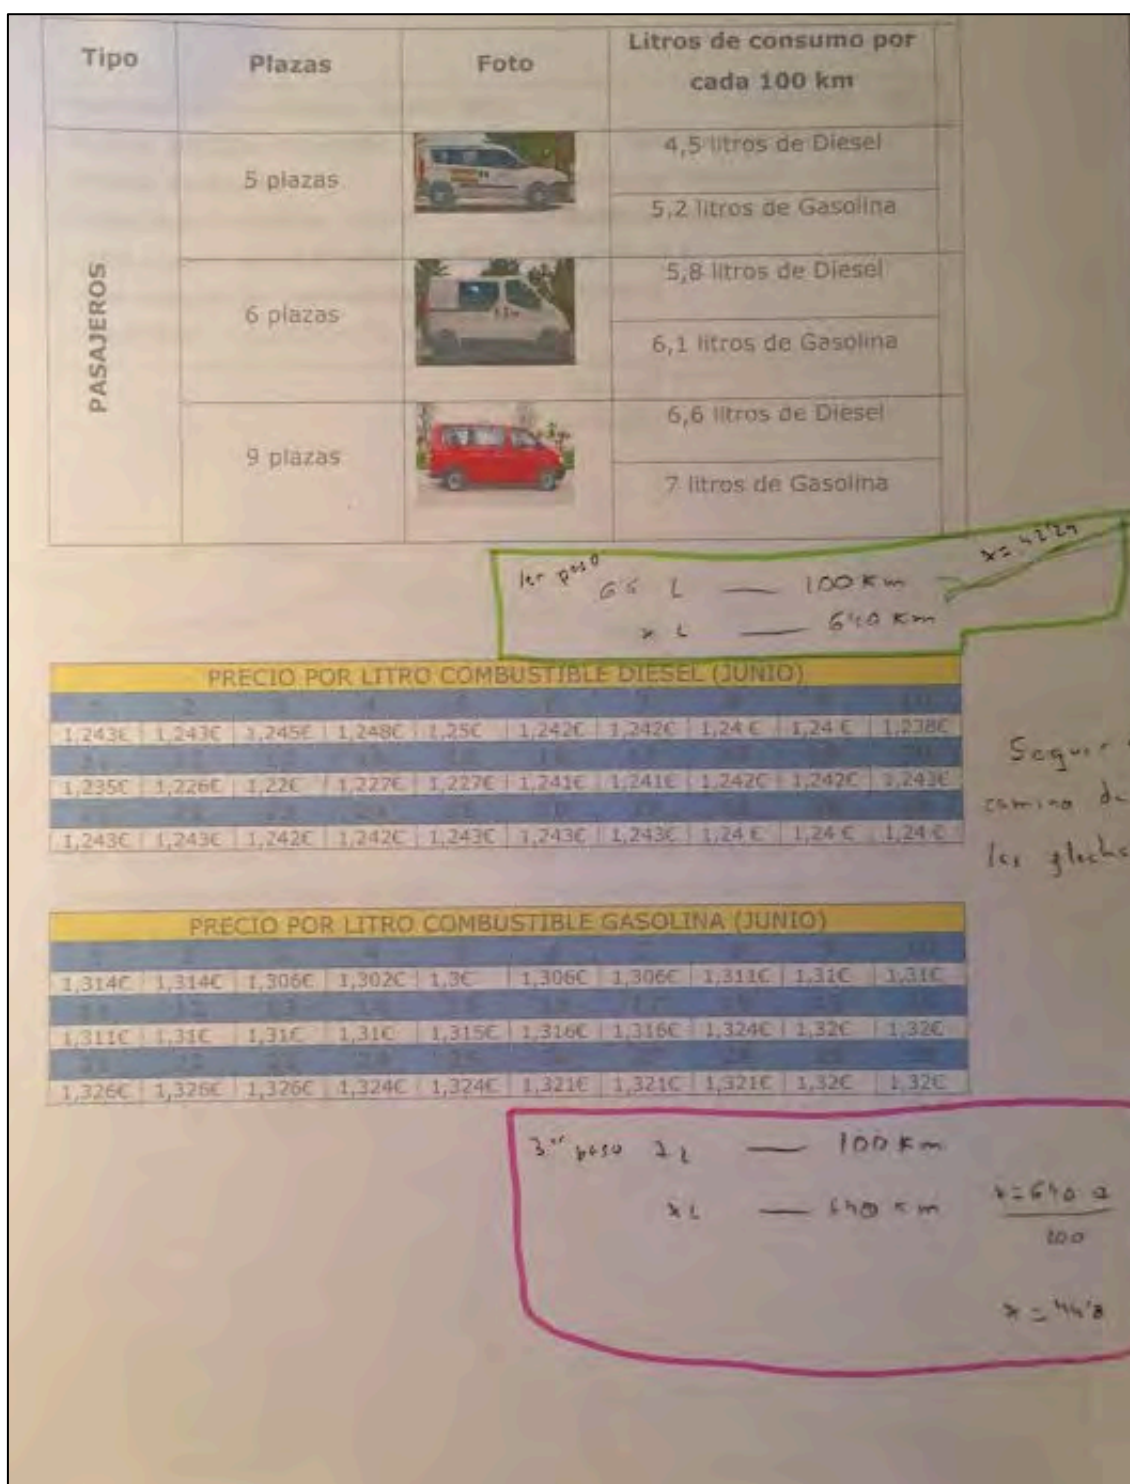 Tipo Plazas Foto Litros de consumo por
cada 100 km
PASAJEROS
5 plazas
4,5 litros de Diesel
5,2 litros de Gasolina
6 plazas
5,8 litros de Diesel
6,1 litros de Gasolina
9 plazas
6,6 litros de Diesel
7 litros de Gasolina
1er paso
L — 100 Km
x L — 640 Km
PRECIO POR LITRO COMBUSTIBLE DIESEL (JUNIO)
1,243€ 1,243€ 1,245€ 1,248€ 1,25€ 1,242€ 1,242€ 1,24 € 1,24 € 1,238€
1,235€ 1,226€ 1,22€ 1,227€ 1,227€ 1,241€ 1,241€ 1,242€ 1,242€ 1,243€
1,243€ 1,243€ 1,242€ 1,242€ 1,243€ 1,243€ 1,243€ 1,24 € 1,24 € 1,24 €
Seguir
camino de
las flechas
PRECIO POR LITRO COMBUSTIBLE GASOLINA (JUNIO)
1,314€ 1,314€ 1,306€ 1,302€ 1,3€ 1,306€ 1,306€ 1,311€ 1,31€ 1,31€
1,311€ 1,31€ 1,31€ 1,31€ 1,315€ 1,316€ 1,316€ 1,324€ 1,32€ 1,32€
1,326€ 1,326€ 1,326€ 1,324€ 1,324€ 1,321€ 1,321€ 1,321€ 1,32€ 1,32€
3er paso 7 L — 100 Km
x L — 640 Km
x = 640 ·
100
x = 44'8